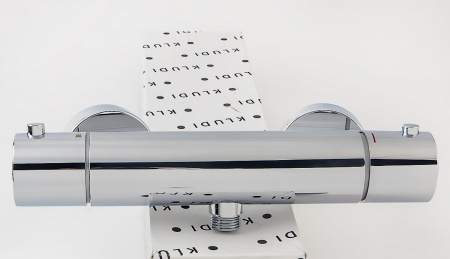 KLUDI
KLUDI
KLUDI
KLUDI
KLUDI
KLU